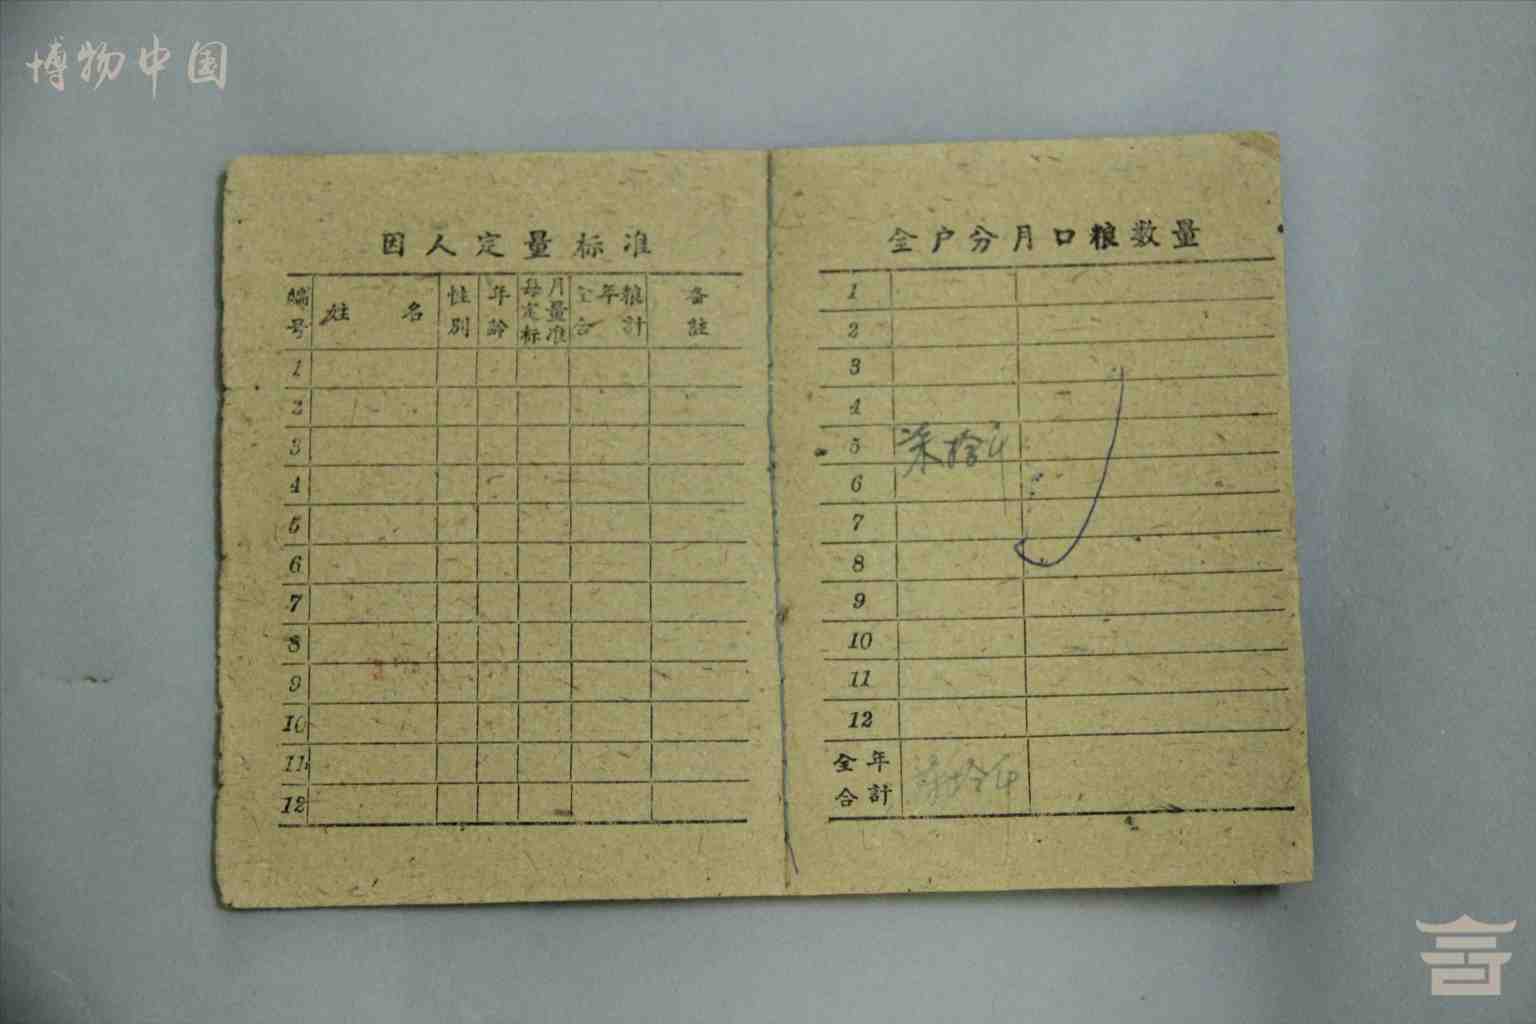 博物中国
因人定量标准
编号 姓名 性別 年龄 每月定量标准 全年粮合計 备註
1
2
3
4
5
6
7
8
9
10
11
12
全户分月口粮数量
1
2
3
4
5 柒拾斤
6
7
8
9
10
11
12
全年合計 柒拾斤